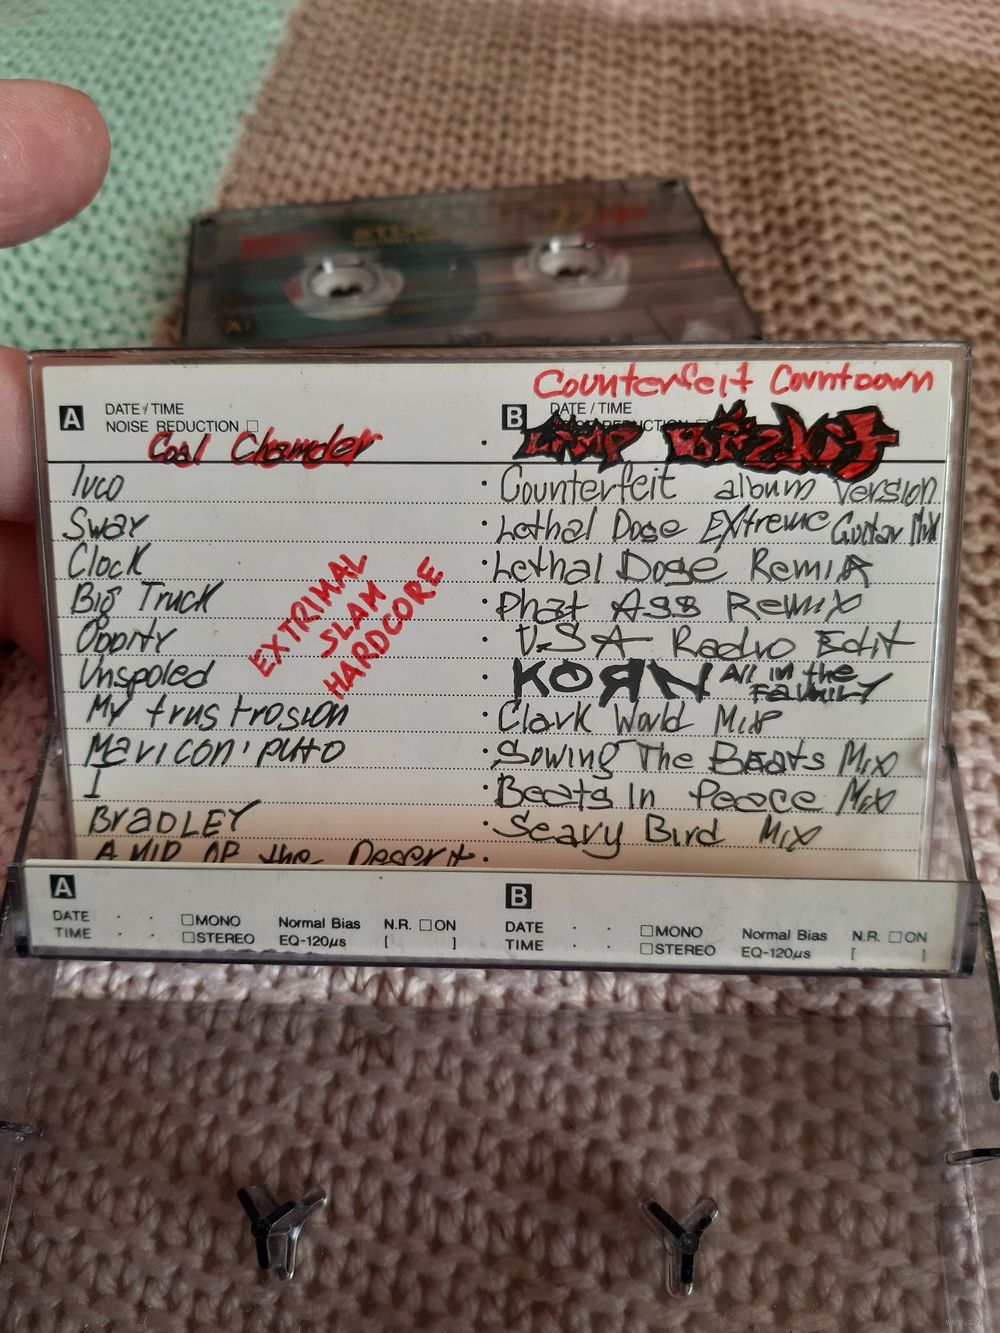 A
DATE / TIME
NOISE REDUCTION
Coal Chamder
Ivco
Sway
Clock
Big Truck
Oddity
Unspoled
My frustrosion
Maricon' puto
I
BRADLEY
A MID OF the Deserit.
EXTRIMAL
SLAM
HARDCORE
Counterfeit Countdown
B
DATE / TIME
REDUCTION
LIMP BIZKIT
Counterfeit album Version
Lethal Dose EXtreme Guitar Mix
Lethal Dose Remix
Phat Ass Remix
USA Radio Edit
KOЯN All in the
FAMILY
Clark World Mix
Sowing The Beats Mix
Beats In Peace Mix
Scary Bird Mix
A
DATE · · MONO Normal Bias N.R. ON
TIME STEREO EQ-120μs [ ]
B
DATE · · MONO Normal Bias N.R. ON
TIME STEREO EQ-120μs [ ]